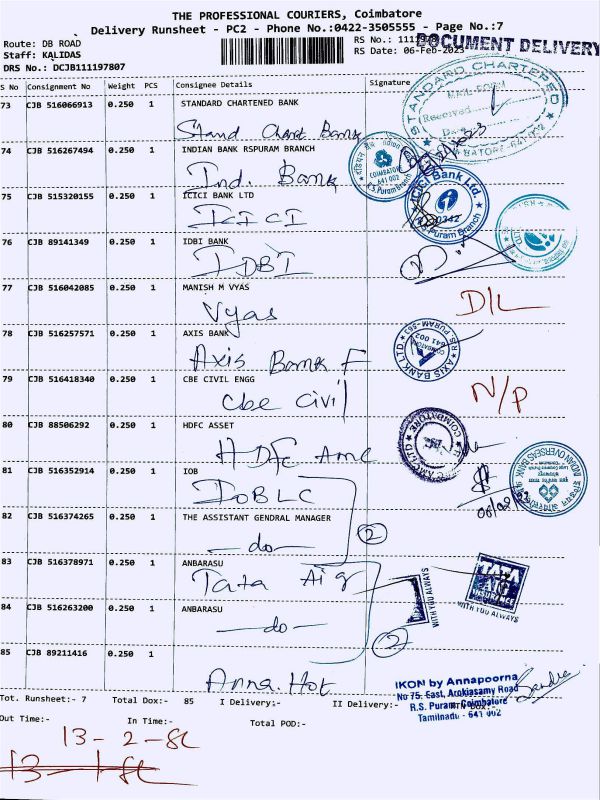 THE PROFESSIONAL COURIERS, Coimbatore
Delivery Runsheet - PC2 - Phone No.:0422-3505555 - Page No.:7
Route: DB ROAD
Staff: KALIDAS
DRS No.: DCJB111197807
RS Date: 06-Feb-2023
DOCUMENT DELIVERY
S No Consignment No Weight PCS Consignee Details Signature
73 CJB 516066913 0.250 1 STANDARD CHARTENED BANK
STANDARD CHARTERED
Received
Stand Chart Bank
74 CJB 516267494 0.250 1 INDIAN BANK RSPURAM BRANCH
Ind. Bank
COIMBATORE
641 002
R.S.Puram Branch
75 CJB 515320155 0.250 1 ICICI BANK LTD
ICICI
ICICI Bank Ltd
R.S. Puram Branch
76 CJB 89141349 0.250 1 IDBI BANK
IDBI
77 CJB 516042085 0.250 1 MANISH M VYAS
Vyas
D/L
78 CJB 516257571 0.250 1 AXIS BANK
Axis Bank F
AXIS BANK LTD
R.S. PURAM
79 CJB 516418340 0.250 1 CBE CIVIL ENGG
Cbe Civil
N/P
80 CJB 88506292 0.250 1 HDFC ASSET
HDFC Amc
COIMBATORE
81 CJB 516352914 0.250 1 IOB
IOBLC
INDIAN OVERSEAS BANK
82 CJB 516374265 0.250 1 THE ASSISTANT GENDRAL MANAGER
-do-
2
83 CJB 516378971 0.250 1 ANBARASU
Tata Aig
TATA
WITH YOU ALWAYS
WITH YOU ALWAYS
84 CJB 516263200 0.250 1 ANBARASU
-do-
2
85 CJB 89211416 0.250 1
Anna.Hot
IKON by Annapoorna
No 75, East, Arokiasamy Road
R.S. Puram, Coimbatore
Tamilnadu - 641 002
Tot. Runsheet:- 7 Total Dox:- 85 I Delivery:- II Delivery:-
Out Time:- In Time:- Total POD:-
13-2-SL
13-1-SL